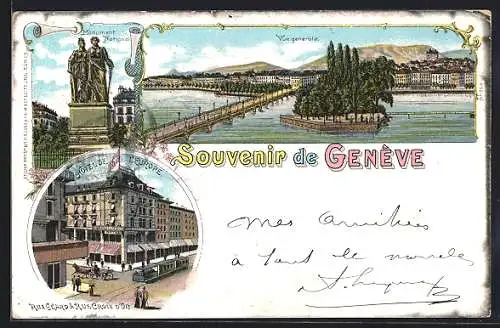 Monument
National
Vue générale.
Souvenir de GENÈVE
HOTEL DE L'EUROPE
mes amitiés
à tout le monde
RUE CÉARD & RUE CROIX D'OR